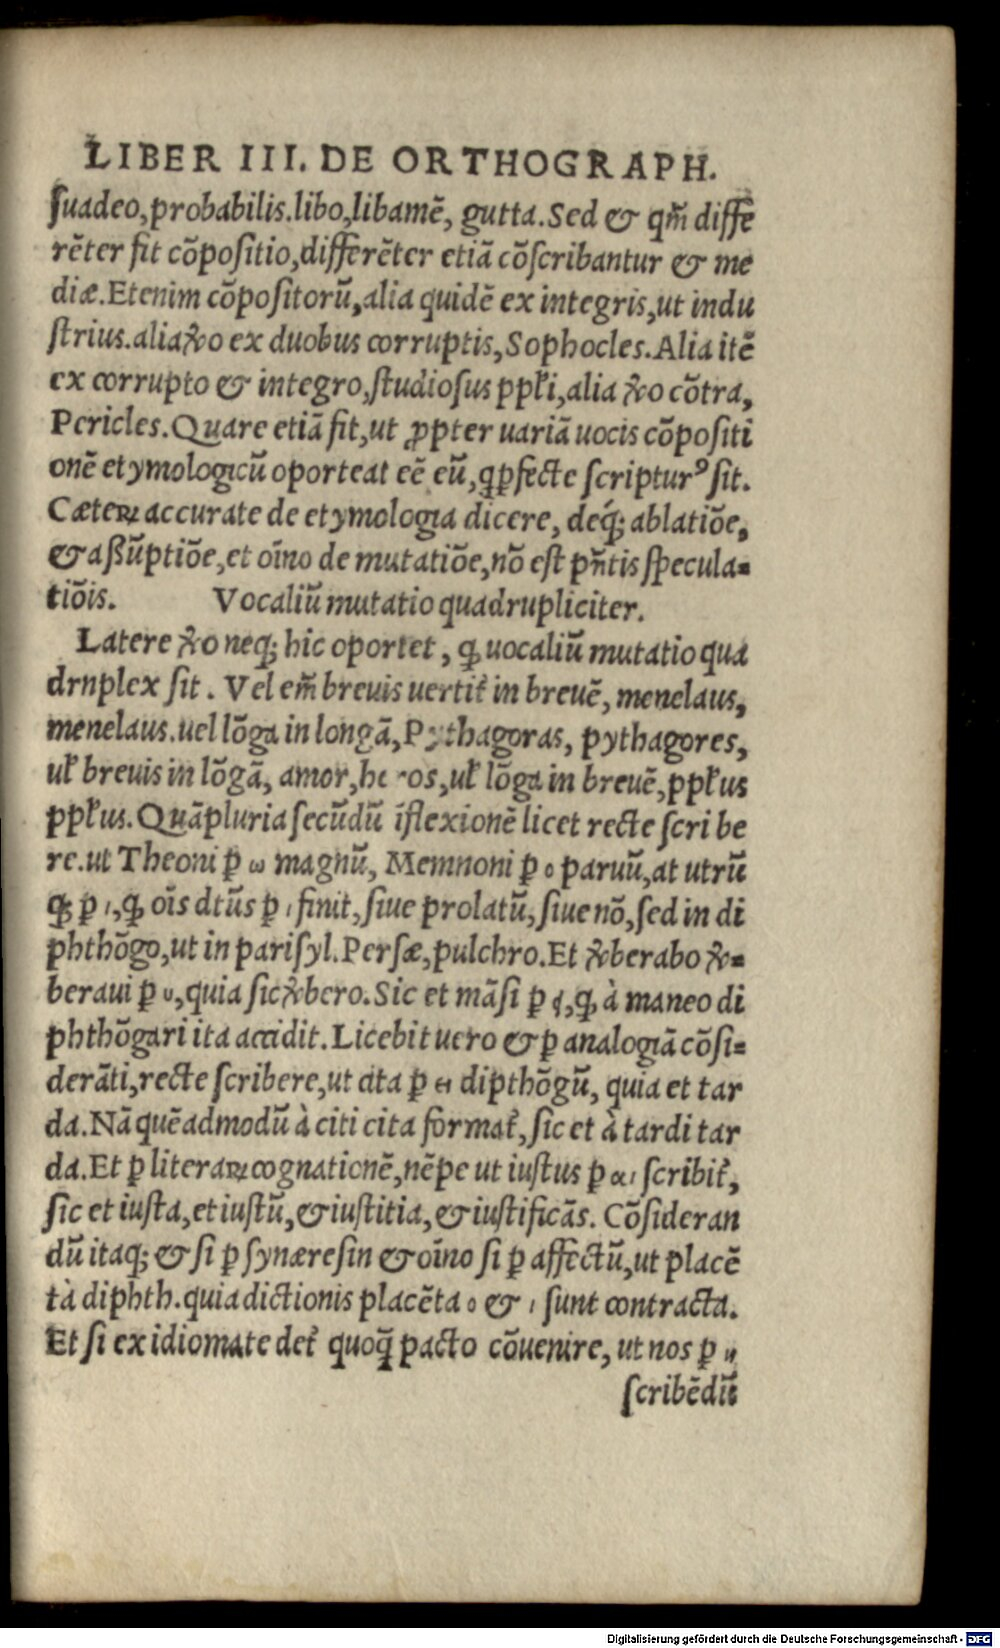 LIBER III. DE ORTHOGRAPH.
ſuadeo, probabilis. libo, libamē, gutta. Sed & qm̄ diffe
rēter fit cōpoſitio, differēter etiā cōſcribantur & me
diæ. Etenim cōpoſitorū, alia quidē ex integris, ut indu
ſtrius. alia ꝟo ex duobus corruptis, Sophocles. Alia itē
ex corrupto & integro, ſtudioſus ppłi, alia ꝟo cōtra,
Pericles. Quare etiā fit, ut ꝓpter uariā uocis cōpoſiti
onē etymologicū oporteat eē eū, q ꝑfecte ſcripturꝰ ſit.
Cæteꝝ accurate de etymologia dicere, deq́; ablatiōe,
& aßūptiōe, et oīno de mutatiōe, nō eſt pn̄tis ſpecula-
tiōis. Vocaliū mutatio quadrupliciter.
Latere ꝟo neq; hic oportet, ꝙ uocaliū mutatio qua
drnplex ſit. Vel em̄ breuis uertit᷒ in breuē, menelaus,
menelaus. uel lōga in longā, Pythagoras, pythagores,
uł breuis in lōgā, amor, he ros, uł lōga in breuē, ppłus
ppłus. Quāpluria ſecūdū īflexionē licet recte ſcribe
re. ut Theoni ꝑ ω magnū, Memnoni ꝑ ο paruū, at utrū
ꝙ ꝑ ι, ꝙ oīs dtūs ꝑ ι finit, ſiue prolatū, ſiue nō, ſed in di
phthōgo, ut in pariſyl. Perſæ, pulchro. Et ꝟberabo ꝟ-
beraui ꝑ υ, quia ſic ꝟbero. Sic et māſi ꝑ ᾳ, ꝙ à maneo di
phthōgari ita accidit. Licebit uero & ꝑ analogiā cōſi-
derāti, recte ſcribere, ut cita ꝑ ει dipthōgū, quia et tar
da. Nā quēadmodū à citi cita format᷒, ſic et à tardi tar
da. Et ꝑ literaꝝ cognationē, nēpe ut iuſtus ꝑ αι ſcribit᷒,
ſic et iuſta, et iuſtū, & iuſtitia, & iuſtificās. Cōſideran
dū itaq; & ſi ꝑ ſynæreſin & oīno ſi ꝑ affectū, ut placē
tà diphth. quia dictionis placēta ο & ι ſunt contracta.
Et ſi ex idiomate det᷒ quoq̄ pacto cōuenire, ut nos ꝑ
ſcribēdū
Digitalisierung gefördert durch die Deutsche Forschungsgemeinschaft - DFG